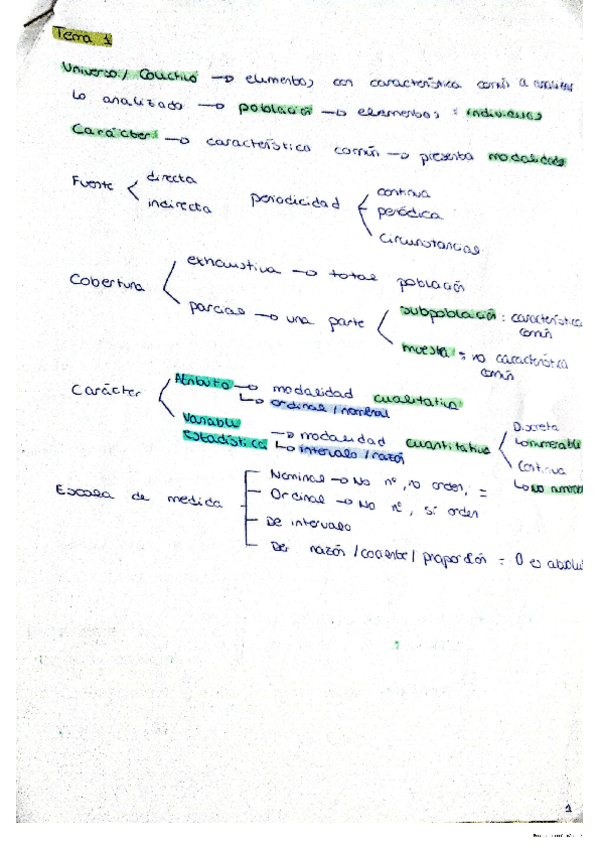 Tema 1
Universo / Colectivo → elementos, con característica común a analizar
Lo analizado → población → elementos = individuos
Carácter → característica común → presenta modalidades
Fuente directa
indirecta
periodicidad continua
periódica
circunstancial
Cobertura exhaustiva → total población
parcial → una parte
subpoblación: característica común
muestra: no característica común
Carácter Atributo → modalidad cualitativa
↳ ordinal / nominal
Variable Estadística → modalidad cuantitativa
↳ intervalo / razón
Discreta
↳ numerable
Continua
↳ no numer
Escala de medida
Nominal → No nº, no orden, =
Ordinal → No nº, sí orden
De intervalo
De razón / cociente / proporción = 0 es absolu
1